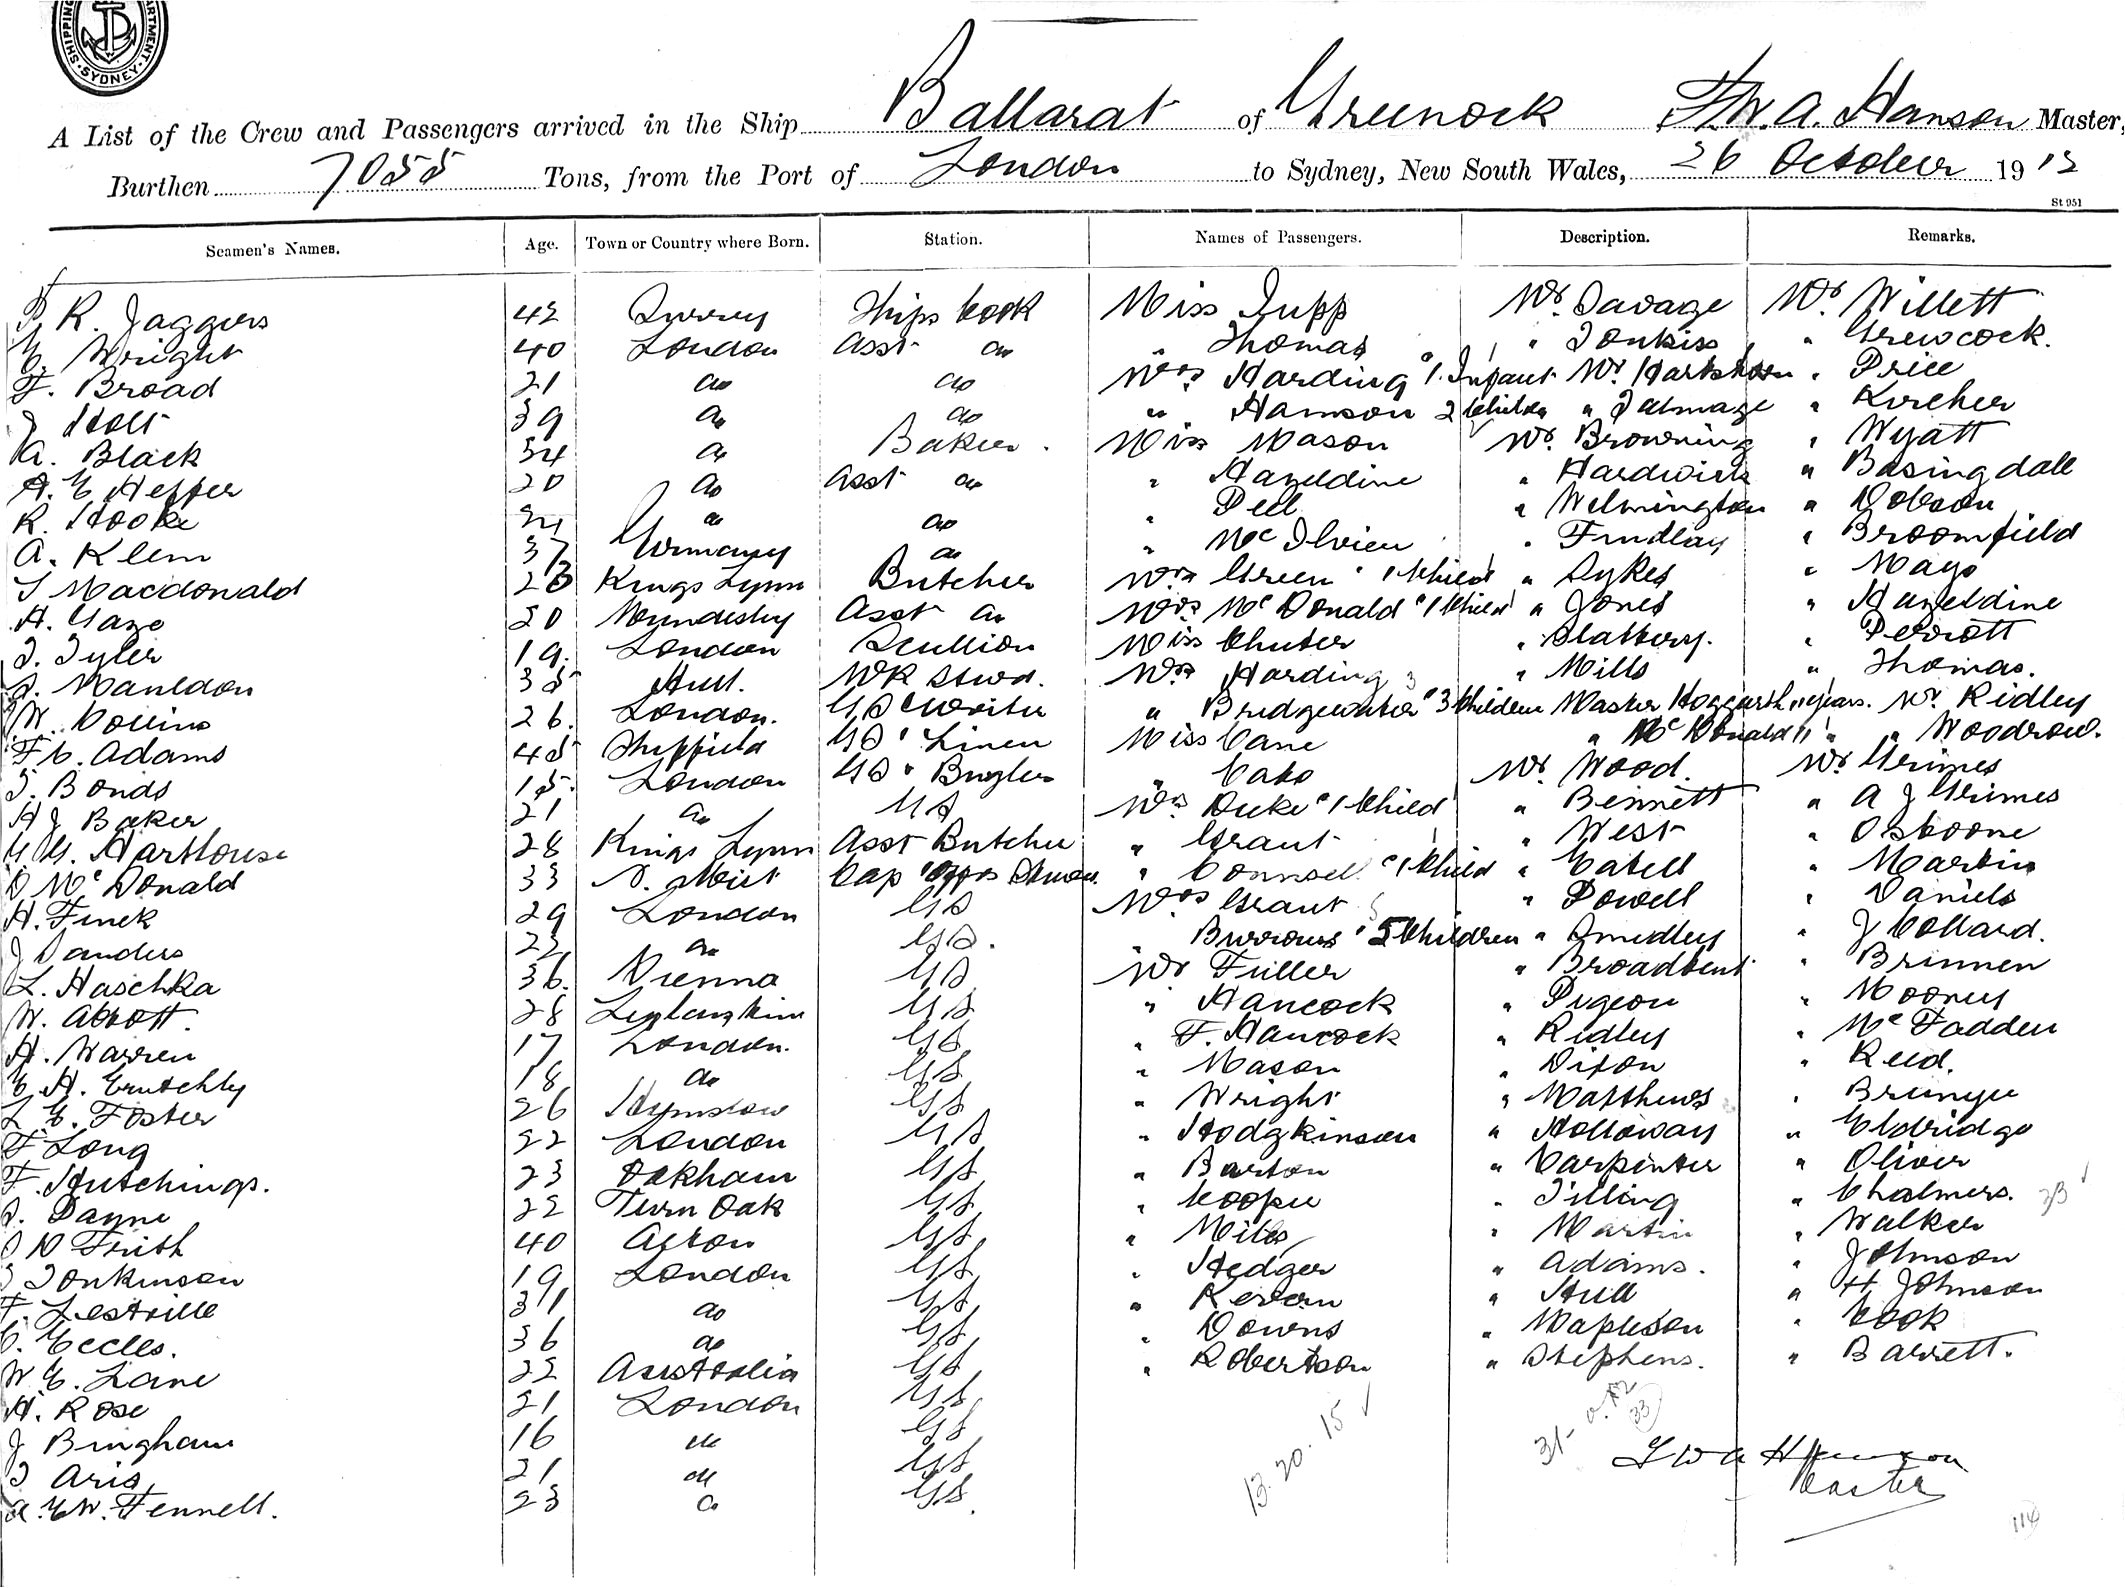 SHIPPING DEPARTMENT SYDNEY
A List of the Crew and Passengers arrived in the Ship Ballarat of Greenock F.W.A. Hanson Master,
Burthen 7055 Tons, from the Port of London to Sydney, New South Wales, 26 October 1912
St 951
Seamen's Names. Age. Town or Country where Born. Station. Names of Passengers. Description. Remarks.
R. Jaggers 42 Surrey Ships Cook Miss Jupp Mr. Savage Mr. Willett
Wright 40 London Asst do " Thomas " Jonkiss " Grewcock.
F. Broad 21 do do Mrs Harding & 1 Infant Mr. " Price
J Holt 39 do do " Hamson 2 Childn " Talmage " Kircher
A. Black 34 do Baker Miss Mason Mr. Browning " Wyatt
A. E Hepper 20 do Asst do " Hazeldine " Hardwick " Basingdale
R. Hooke do do " Pell " Wilmington " Dobson
A. Klem 37 Germany do " Findlay " Broomfield
Macdonald 23 Kings Lynn Butcher Mrs Green & 1 Child " Sykes " Mayo
H. Gaze 20 Mundesley Asst do Mrs McDonald & 1 Child " Jones " Hazeldine
Tyler 19. London Scullion Miss Chuter " Slattery. " Perrott
Mauldon 35 Hull. Mrs Harding " Mills " Thomas.
W. Collins 26. London. " Bridgewater & 3 Children Master Hoggarth 11 years. Mr. Ridley
F C. Adams 45 Sheffield GS " Linen Miss Cane " McDonald 11 " " Woodrow.
Bonds 15. London GS " Bugler " Cato Mr. Wood. Mr Grimes
H J Baker 21 do GS Mrs Duke & 1 Child " Bennett " A J Grimes
Harthouse 28 Kings Lynn Asst Butcher " Grant " West " Osboone
D McDonald 33 " & 1 Child " Catell " Martin
H. Finck 29 London GS Mrs Grant " Powell " Daniels
J Sanders 22 do GS. " Burrows & 5 Children " Smedley " J Collard.
L. Haschka 36. Vienna GS Mr Fuller " Broadbent " Brinnen
W. Abbott. 28 GS " Hancock " Pigeon " Mooney
H. Warren 17 London. GS " F. Hancock " Ridley " McFadden
E. H. Crutchly 18 do GS " Mason " Dixon " Reid.
L. E. Foster 26 GS " Wright " Matthews
F Long 22 London GS " Hodgkinson " Holloway " Eldridge
F. Hutchings. 23 Oakham GS " Barton " Carpenter " Oliver
Payne 22 Turn Oak GS " Cooper " Tilling " Chalmers.
D Frith 40 Acton GS " Miles " Martin " Walker
Tonkinson 19 London GS " Hedger " Adams. " Johnson
F. Lestrille 31 do GS " Kevern " Hull " H Johnson
Eccles. 36 do GS " Downs " Mapleson " Cook
W. E. Lane 22 Australia GS " Robertson " Stephens. " Barrett.
H. Rose 21 London GS
J Bingham 16 do GS
Aris 21 do GS
A. E W. Fennell. 23 do GS
13. 20. 15
F W A Hanson
Master
114